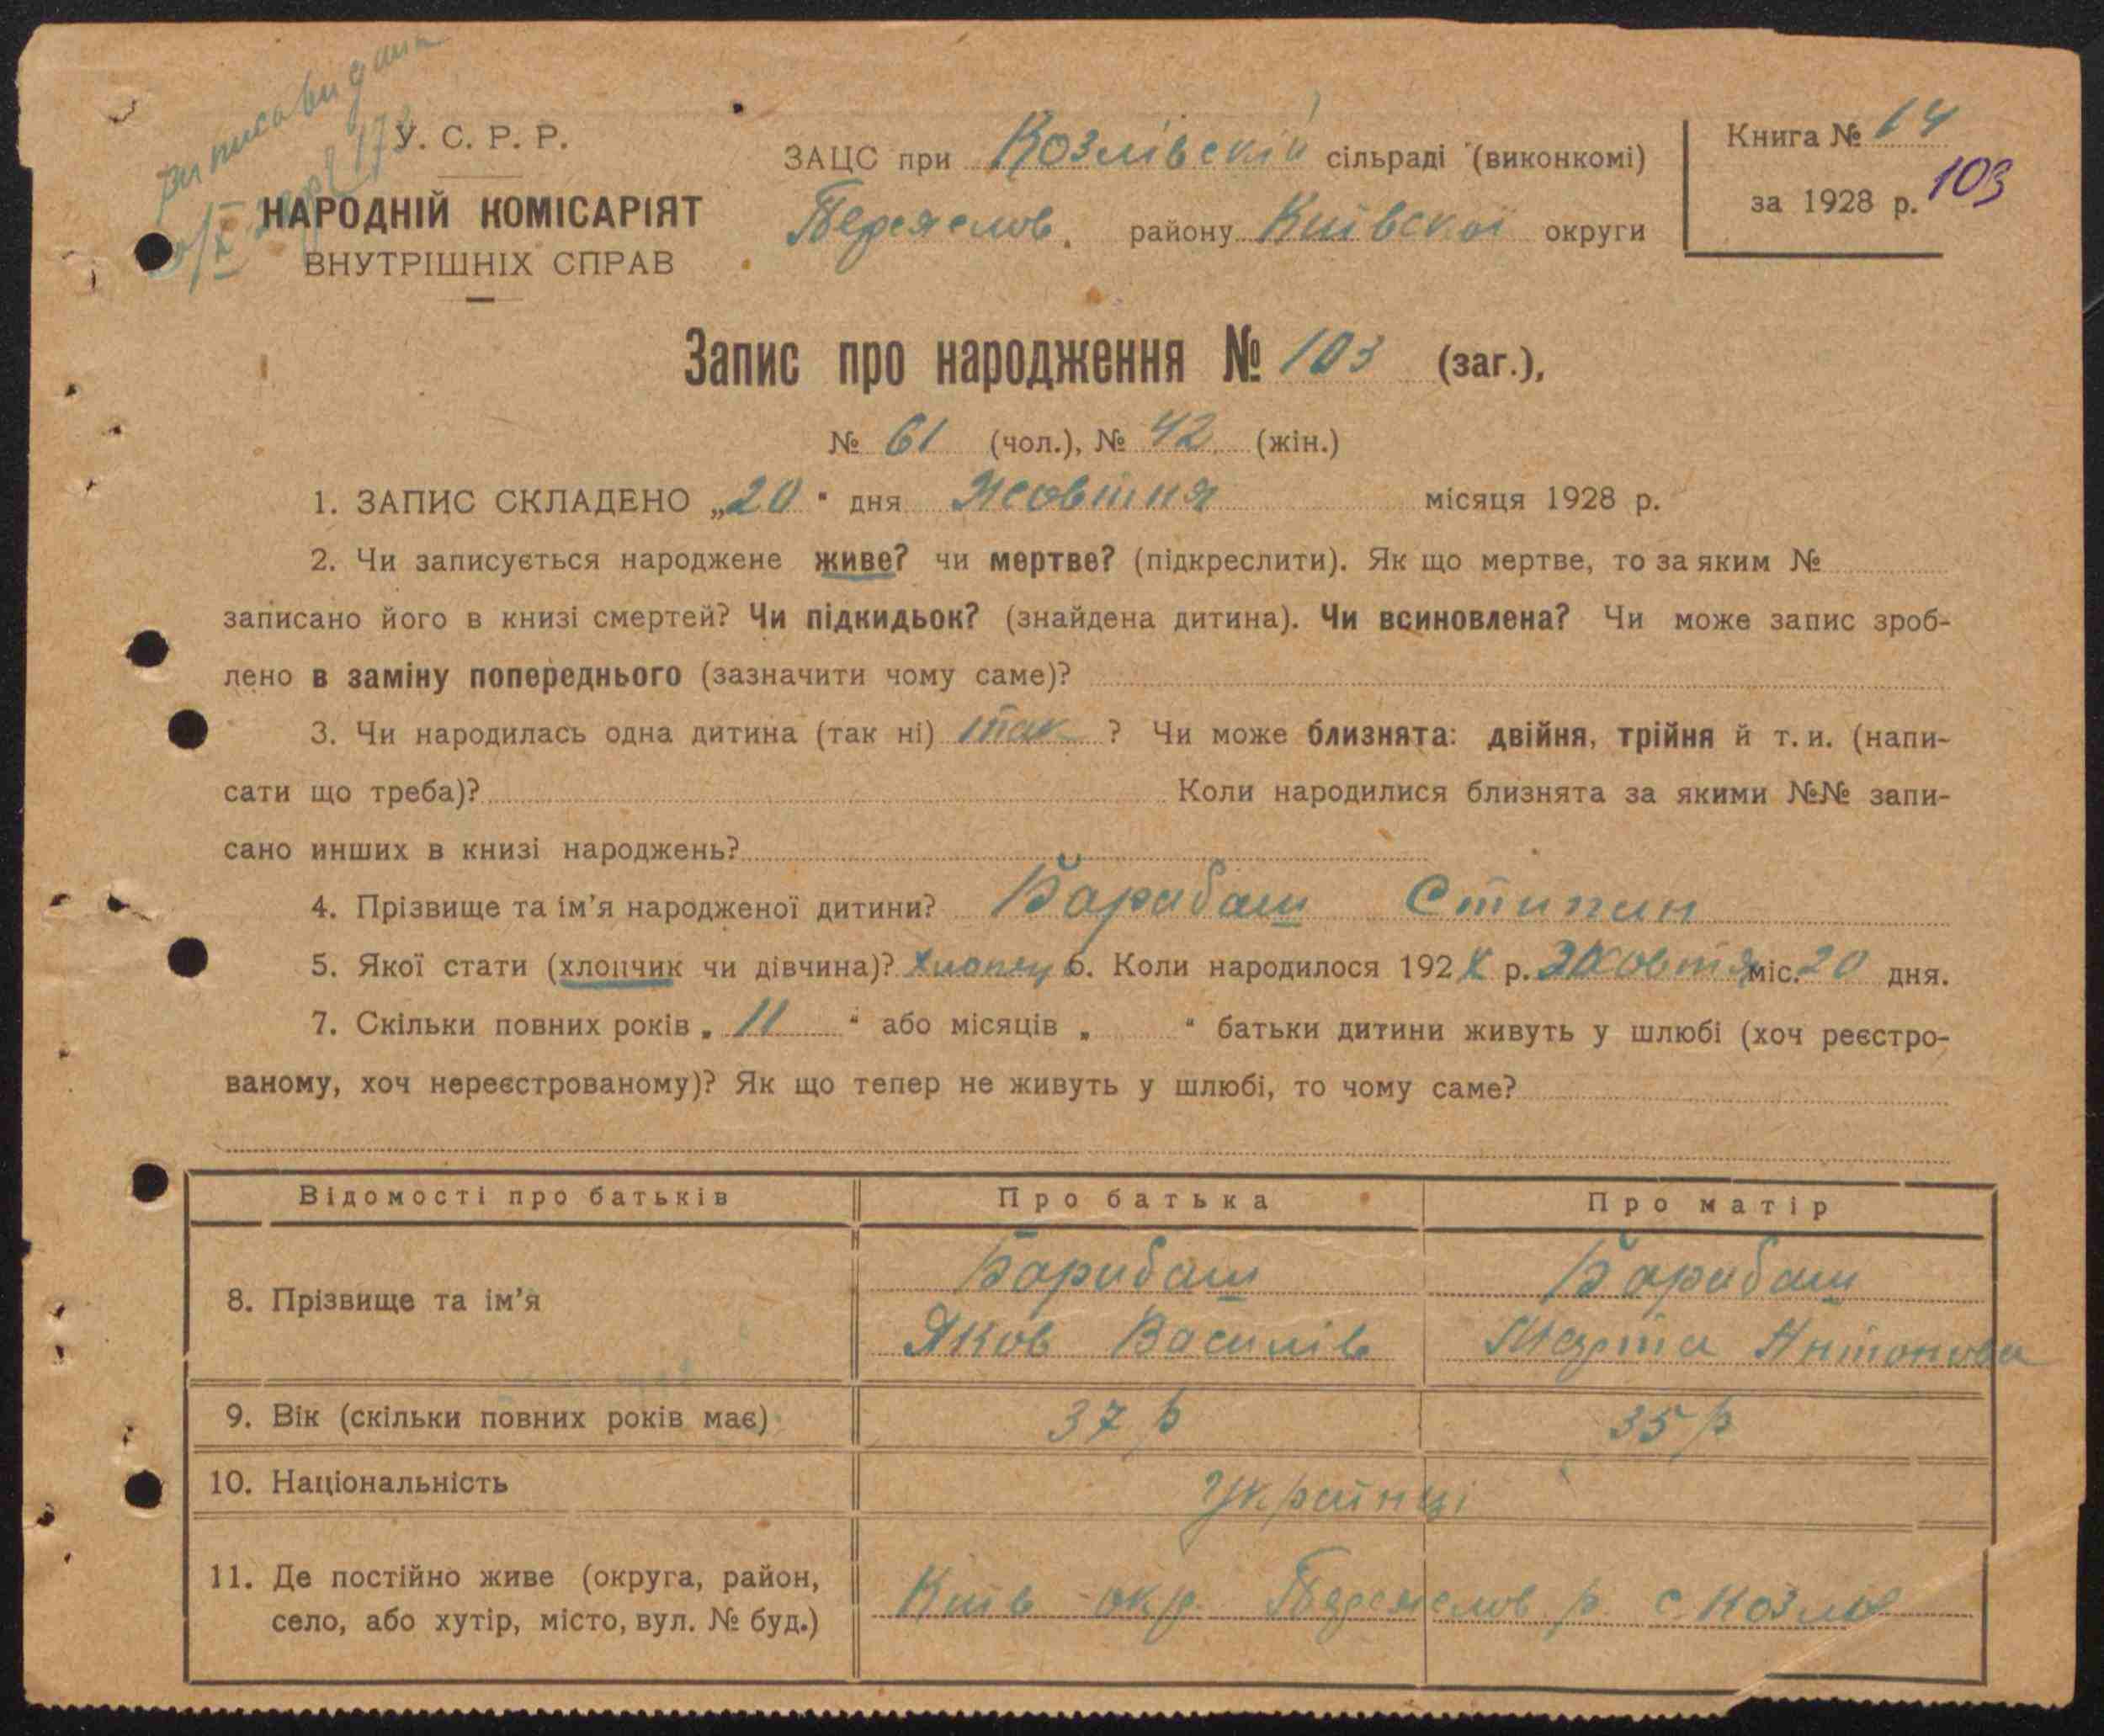 виписа видана
У. С. Р. Р.
НАРОДНІЙ КОМІСАРІЯТ
ВНУТРІШНІХ СПРАВ
ЗАЦС при Козлівскій сільраді (виконкомі)
Переяслов. району Київскої округи
Книга № 14
за 1928 р. 103
Запис про народження № 103 (заг.),
№ 61 (чол.), № 42 (жін.)
1. ЗАПИС СКЛАДЕНО „20“ дня Жовтня місяця 1928 р.
2. Чи записується народжене живе? чи мертве? (підкреслити). Як що мертве, то за яким №
записано його в книзі смертей? Чи підкидьок? (знайдена дитина). Чи всиновлена? Чи може запис зроб-
лено в заміну попереднього (зазначити чому саме)?
3. Чи народилась одна дитина (так ні) так ? Чи може близнята: двійня, трійня й т. и. (напи-
сати що треба)? Коли народилися близнята за якими №№ запи-
сано инших в книзі народжень?
4. Прізвище та ім’я народженої дитини? Барабаш Стипан
5. Якої стати (хлопчик чи дівчина)? Хлопец 6. Коли народилося 1928 р. Жовтня міс. 20 дня.
7. Скільки повних років „ 11 “ або місяців „ “ батьки дитини живуть у шлюбі (хоч реєстро-
ваному, хоч нереєстрованому)? Як що тепер не живуть у шлюбі, то чому саме?
Відомості про батьків Про батька Про матір
8. Прізвище та ім’я
Барабаш Барабаш
Яков Василів Марта Антонова
9. Вік (скільки повних років має) 37 р 35 р
10. Національність Українці
11. Де постійно живе (округа, район,
село, або хутір, місто, вул. № буд.)
Київ окр Переяслов р. с. Козлов